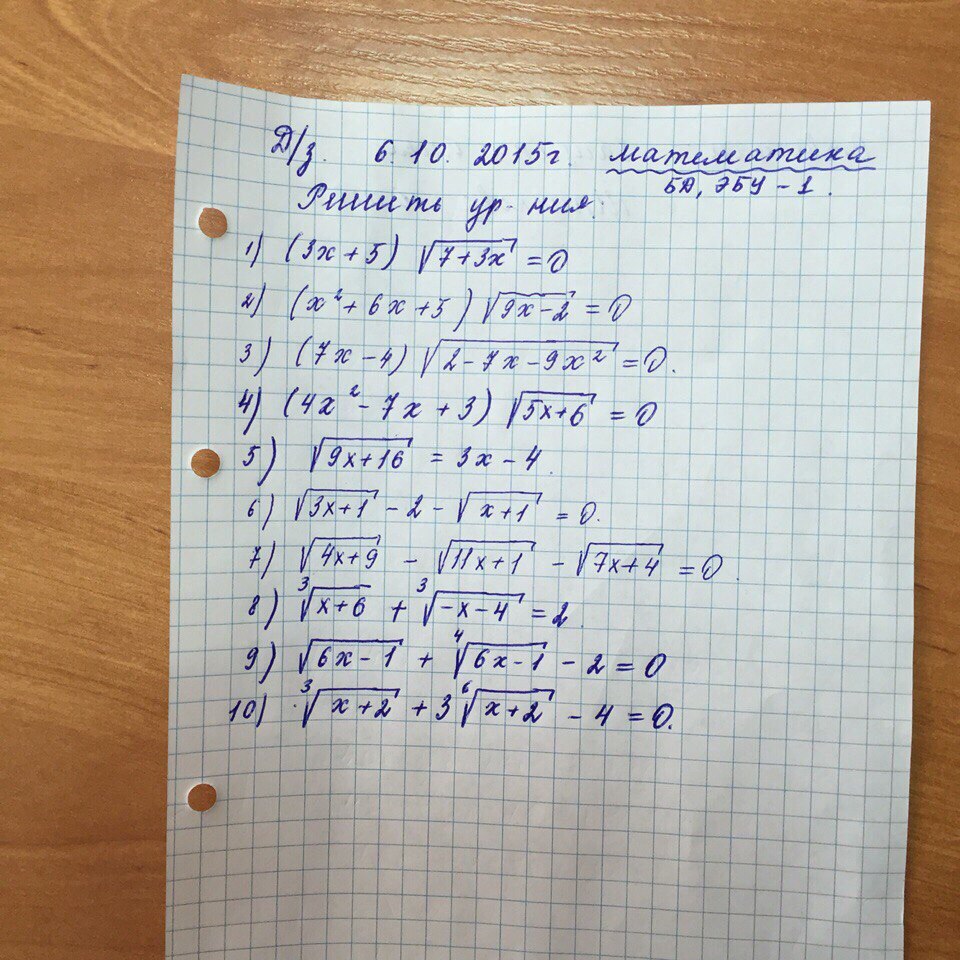 Д/з. 6 10. 2015г. математика
БД, ЭБУ - 1.
Решить ур-ния:
1) (3x + 5) √(7+3x) = 0
2) (x² + 6x + 5) √(9x-2) = 0
3) (7x - 4) √(2 - 7x - 9x²) = 0.
4) (4x² - 7x + 3) √(5x+6) = 0
5) √(9x+16) = 3x - 4.
6) √(3x+1) - 2 - √(x+1) = 0.
7) √(4x+9) - √(11x+1) - √(7x+4) = 0.
8) ∛(x+6) + ∛(-x-4) = 2.
9) √(6x-1) + ∜(6x-1) - 2 = 0
10) ∛(x+2) + 3 ⁶√(x+2) - 4 = 0.